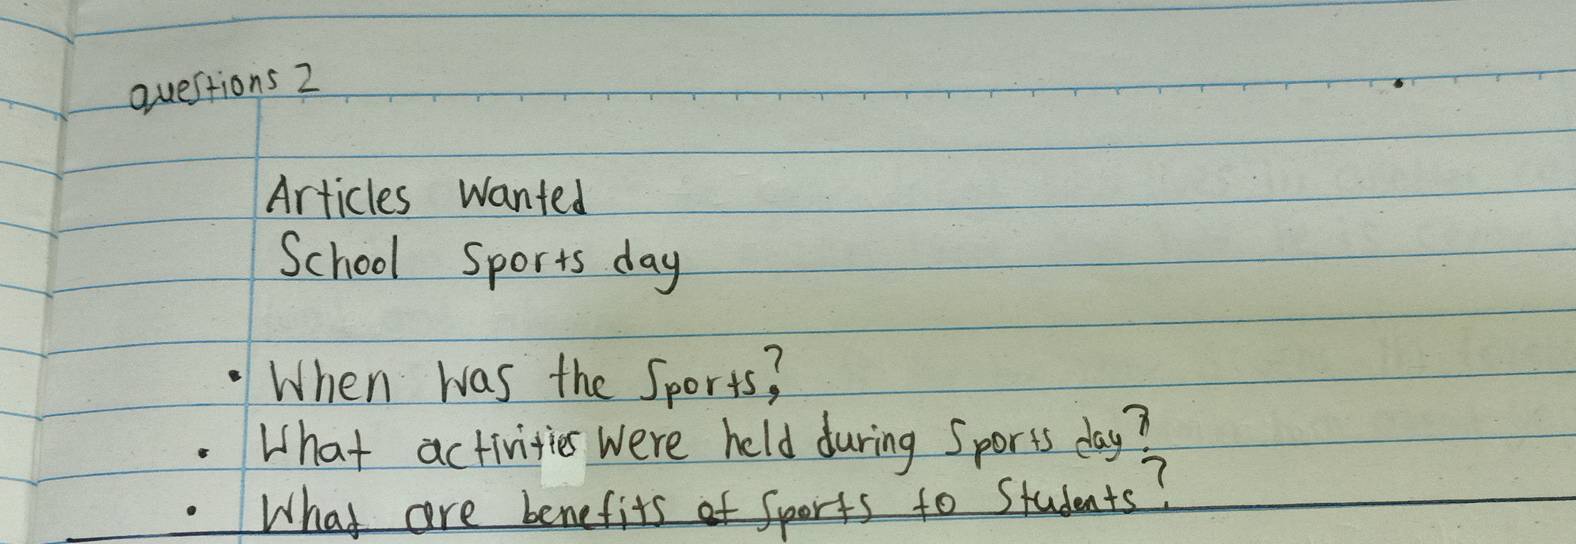 questions 2
Articles Wanted
School Sports day
• When was the Sports?
• What activities were held during Sports day?
• What are benefits of Sports to Students?